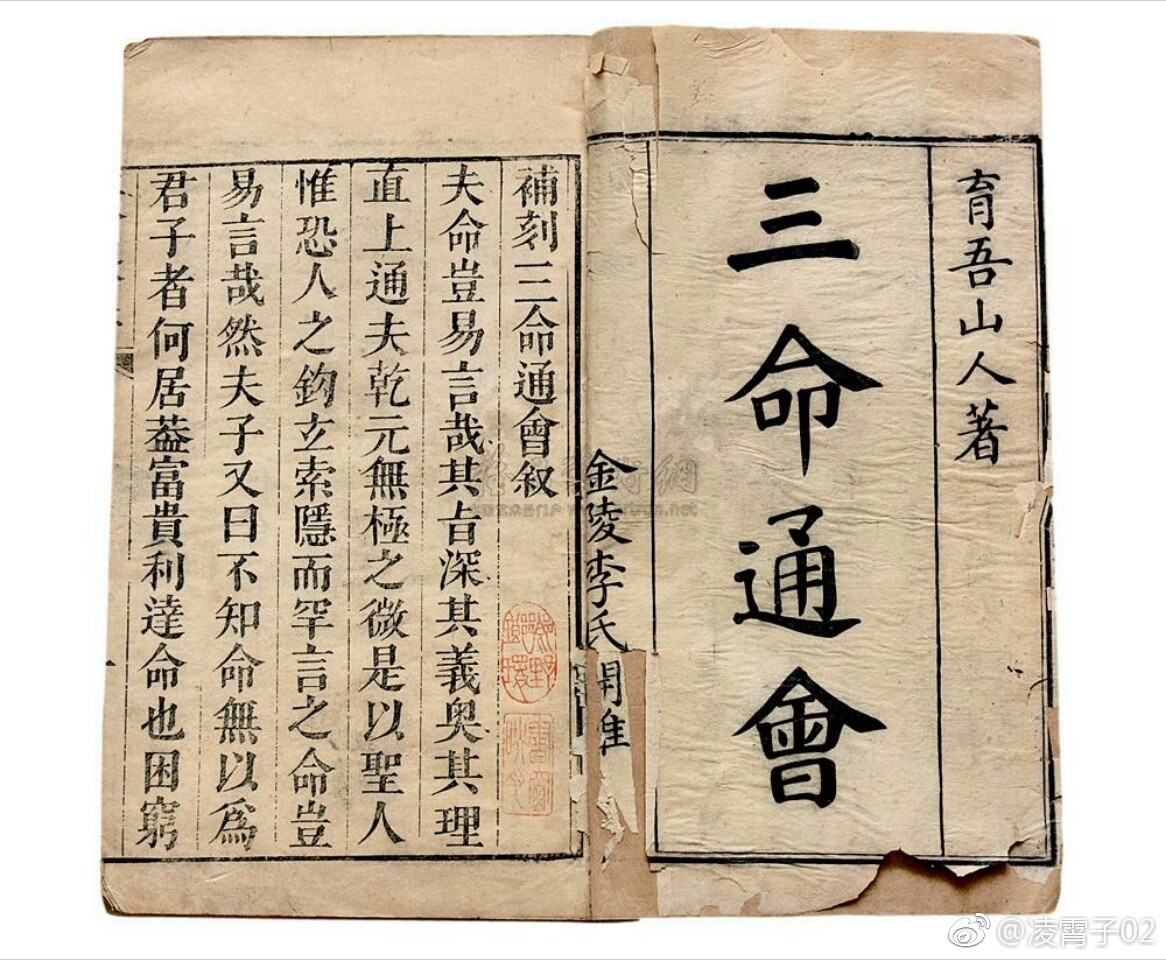 育吾山人著
三命通會
金陵李氏
補刻三命通會叙
夫命豈易言哉其㫖深其義奥其理
直上通夫乾元無極之微是以聖人
惟恐人之鈎玄索隱而罕言之命豈
易言哉然夫子又曰不知命無以爲
君子者何居葢富貴利達命也困窮
@凌霄子02